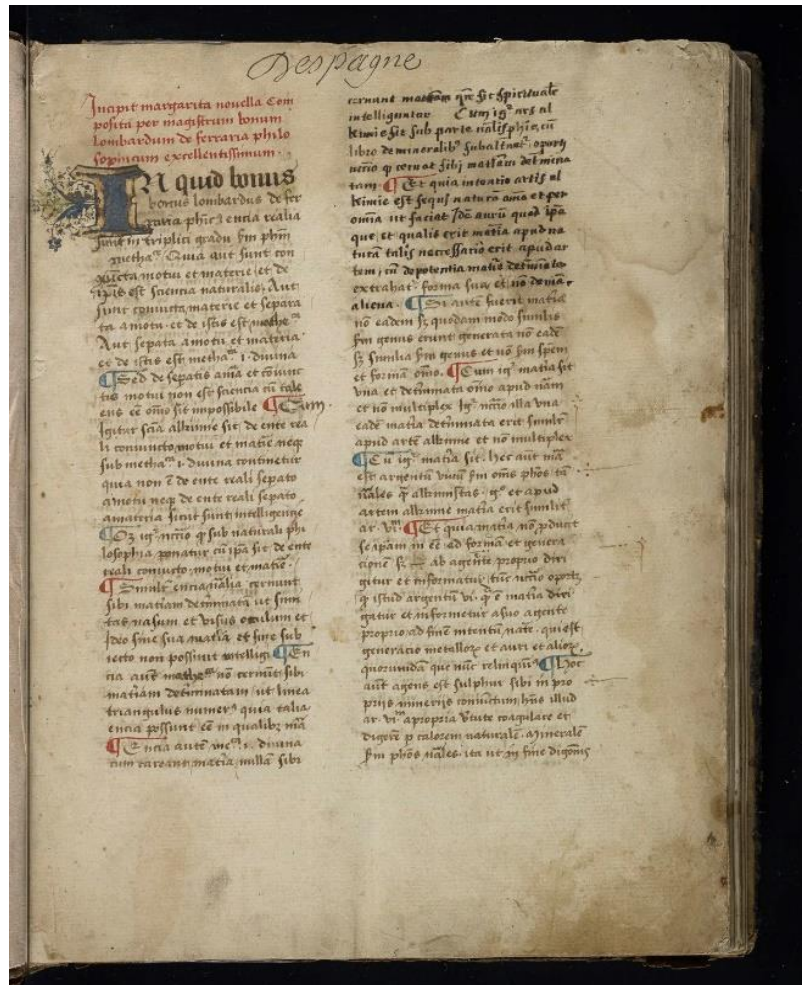 Despagne
Incipit margarita nouella Com
posita per magistrum bonum
lombardum de ferraria philo
sophicum excellentissimum.
IN quid bonus
bonus lombardus de fer
raria phic encia realia
sunt in triplici gradu fm phm
metha Quia aut sunt con
motui et materie et de
est sciencia naturalis. Aut
sunt coniuncta materie et separa
ta a motu. et de istis est
Aut sepata a motu et materia
et de istis est metha i. diuina
¶ Sed de sepatis a mā et coniunc
tis motui non est sciencia cū tale
ens eē omō sit impossibile ¶ Cum
igitur scīa alkimie sit de ente rea
li coniuncto motui et matie neqꝫ
sub metha i. diuina continetur
quia non ē de ente reali sepato
a motu neqꝫ de ente reali sepato
a materia sicut sunt intelligencie
¶ Oꝫ ig nccio ꝙ sub naturali phi
losophia ponatur cū ipa sit de ente
reali coniuncto motui et matie.
¶ Similr encia nalia cernunt
sibi matiam detminata ut simi
tas nasum et visus oculum et
ideo sine sua matia et sine sub
iecto non possunt intelligi ¶ En
cia aut non cernut sibi
matiam detminatam ut linea
triangulus numerꝰ quia talia
encia possunt eē in qualibꝫ mā
¶ Encia autē me i. diuina
cum careant matia nulla sibi
cernunt
intelliguntur Cum igꝰ ars al
kimie sit sub parte
libro de mineralibꝰ
sibi
tam. ¶ Et quia intentio artis al
kimie est sequi naturā omō et per
omnia ut faciat aurū quod ipa
que et qualis erit matia apud na
turā talis necessario erit apud ar
tem, cū de potentia matie
extrahat forma sua et nō de mā
aliena. ¶ Si autē fuerit matia
nō eadem sꝫ quodam modo similis
fm genus erunt generata nō eadē
sꝫ similia fm genus et nō fm spem
et formā omō. ¶ Cum igꝰ matia sit
vna et detminata omō apud nām
et nō multiplex Igꝰ nccio illa vna
eadē matia detminata erit similr
apud artē alkimie et nō multiplex
¶ Cū igꝰ matia sit. hec aut mā
est argentū viuū fm oms phos tā
nāles ꝙ alkimistas. igꝰ et apud
artem alkimie matia erit similr
ar. vi. ¶ Et quia matia nō pducit
se ipam in eē ad formā et genera
cionē sꝫ ab agente proprio diri
gitur et informatur, tūc nccio oportꝫ
ꝙ istud argentū vi. ꝙ ē matia diri
gatur et informetur a suo agente
proprio ad finē intentū nāte. qui est
generacio metallorꝫ et auri et aliorꝫ
quorumdā que nūc relinquim ¶ Hoc
aūt agens est sulphur sibi in pro
prijs minerijs coniunctum, hns illud
ar. vi. a propria virtute coagulare et
digere p calorem naturalē. a minerale
fm phos nāles. ita ut in fine digonis